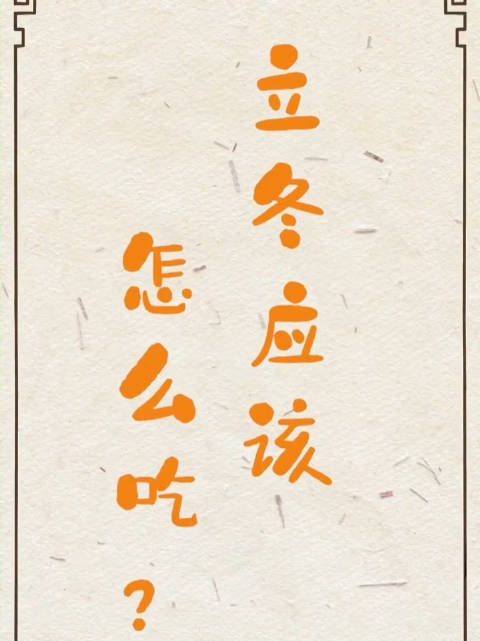 立冬应该
怎么吃？